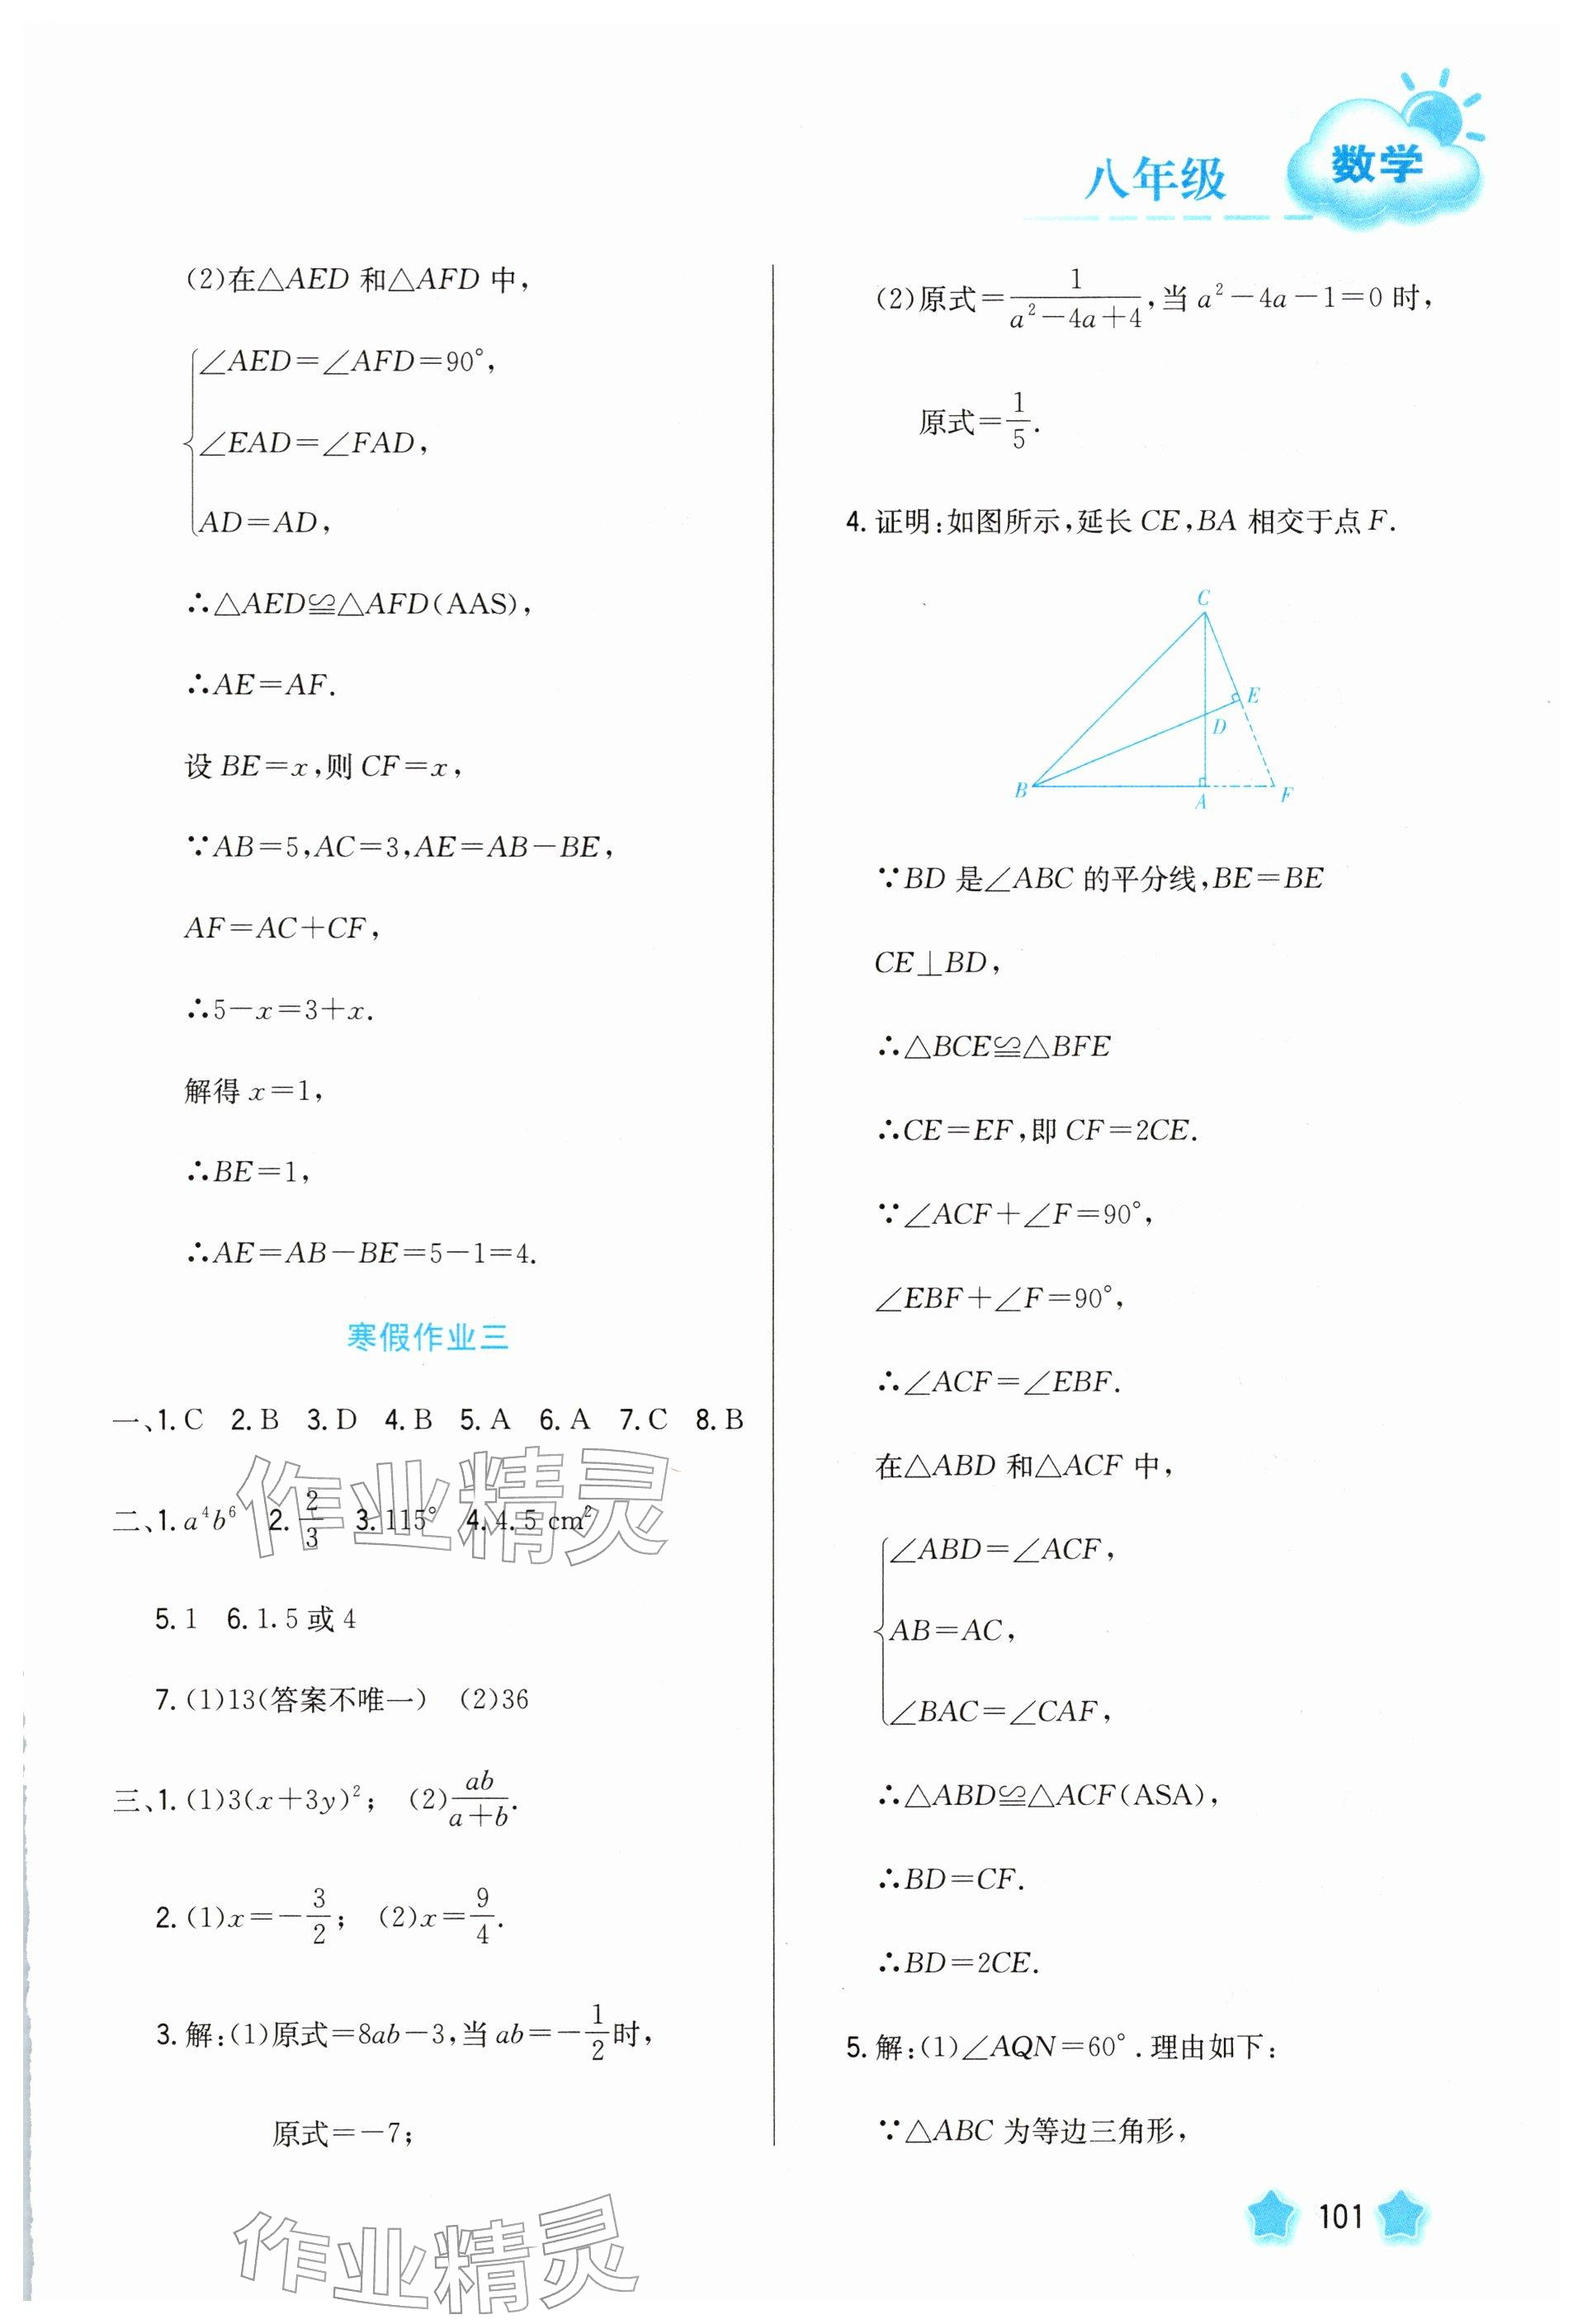 八年级
数学
(2)在△AED 和△AFD 中，
∠AED=∠AFD=90°，
∠EAD=∠FAD，
AD=AD，
∴△AED≌△AFD(AAS)，
∴AE=AF.
设 BE=x，则 CF=x，
∵AB=5，AC=3，AE=AB−BE，
AF=AC+CF，
∴5−x=3+x.
解得 x=1，
∴BE=1，
∴AE=AB−BE=5−1=4.
寒假作业三
一、1. C 2. B 3. D 4. B 5. A 6. A 7. C 8. B
二、1. a⁴b⁶ 2. 2/3 3. 115° 4. 4.5 cm²
5. 1 6. 1.5 或 4
7. (1)13(答案不唯一) (2)36
三、1. (1)3(x+3y)²； (2)ab/(a+b).
2. (1)x=−3/2； (2)x=9/4.
3. 解：(1)原式=8ab−3，当 ab=−1/2时，
原式=−7；
(2)原式=1/(a²−4a+4)，当 a²−4a−1=0 时，
原式=1/5.
4. 证明：如图所示，延长 CE，BA 相交于点 F.
C
E
D
B
A
F
∵BD 是∠ABC 的平分线，BE=BE
CE⊥BD，
∴△BCE≌△BFE
∴CE=EF，即 CF=2CE.
∵∠ACF+∠F=90°，
∠EBF+∠F=90°，
∴∠ACF=∠EBF.
在△ABD 和△ACF 中，
∠ABD=∠ACF，
AB=AC，
∠BAC=∠CAF，
∴△ABD≌△ACF(ASA)，
∴BD=CF.
∴BD=2CE.
5. 解：(1)∠AQN=60°. 理由如下：
∵△ABC 为等边三角形，
101
作业精灵
作业精灵